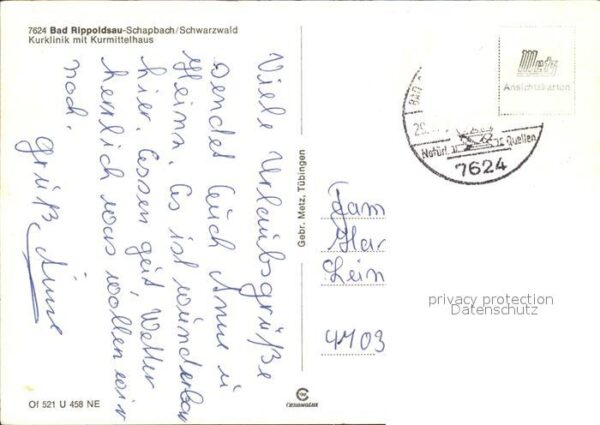 7624 Bad Rippoldsau-Schapbach/Schwarzwald
Kurklinik mit Kurmittelhaus
Viele Urlaubsgrüße
sendet Euch Anne u
Heinz. Es ist wunderbar
hier. Essen gut, Wetter
herrlich was wollen wir
noch.
Grüß Anne
Gebr. Metz, Tübingen
Metz
Ansichtskarten
BAD
Natürl. Quellen
7624
Fam
Har
Lein
4103
privacy protection
Datenschutz
Of 521 U 458 NE